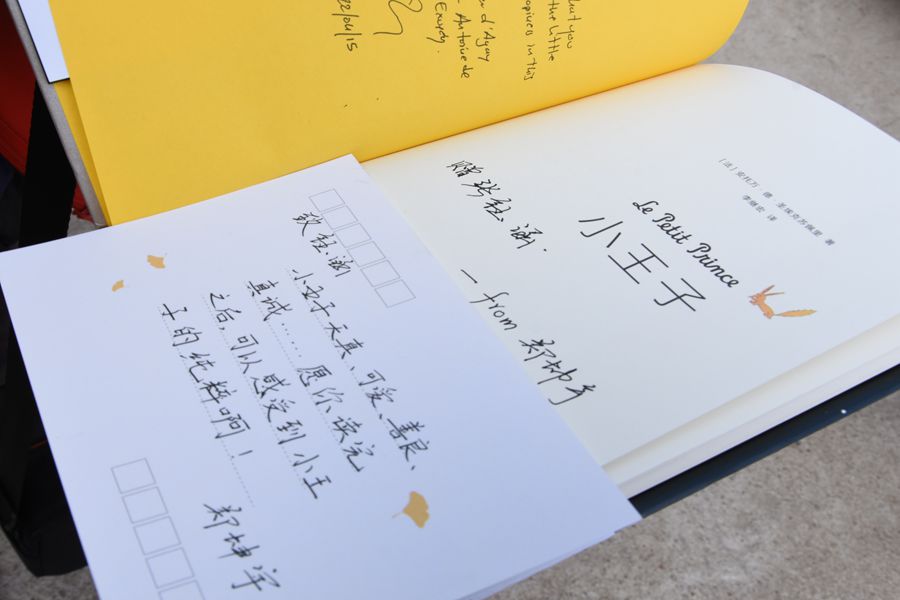 but you
the little
in this
d'Agay
Antoine de
22/04/15
[法] 安托万·德·圣埃克苏佩里 著
李继宏 译
Le Petit Prince
小王子
赠张 涵.
— from 郑坤宇
致 涵
小王子天真、可爱、善良、
真诚……愿你读完
之后,可以感受到小王
子的纯粹啊!
郑坤宇